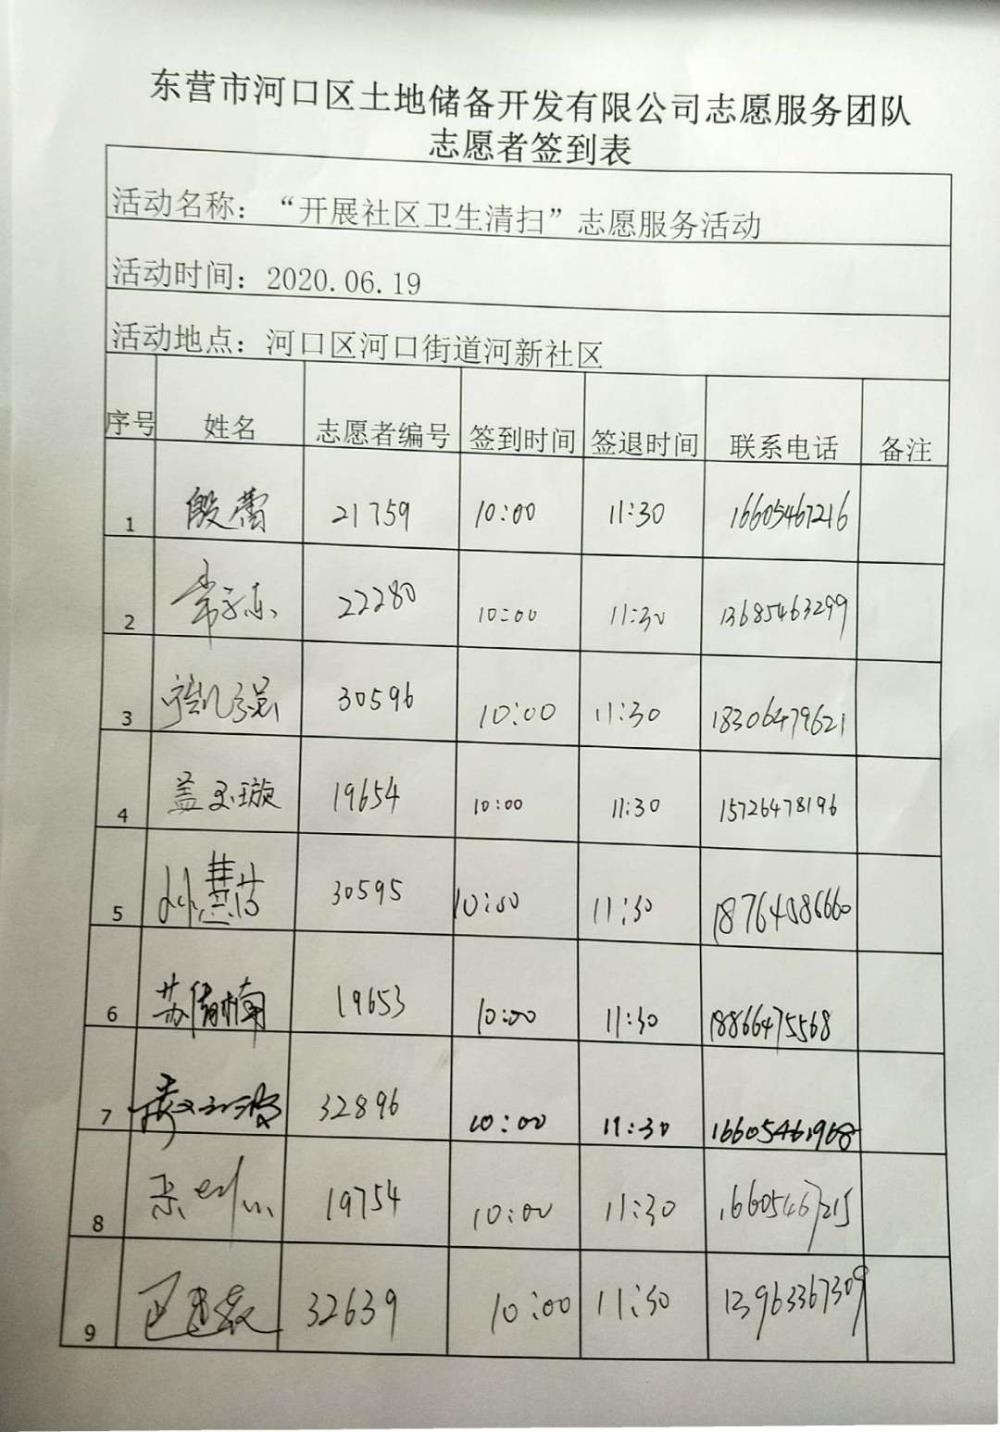 东营市河口区土地储备开发有限公司志愿服务团队
志愿者签到表
活动名称：“开展社区卫生清扫”志愿服务活动
活动时间：2020.06.19
活动地点：河口区河口街道河新社区
序号 姓名 志愿者编号 签到时间 签退时间 联系电话 备注
1 殷蕾 21759 10:00 11:30 16605467216
2 22280 10:00 11:30 13685463299
3 30596 10:00 11:30 18306479621
4 盖玉璇 19654 10:00 11:30 15726478196
5 30595 10:00 11:30 18764086660
6 苏倩楠 19653 10:00 11:30 18866475568
7 32896 10:00 11:30 16605461968
8 19754 10:00 11:30 16605467215
9 32639 10:00 11:30 13963367309